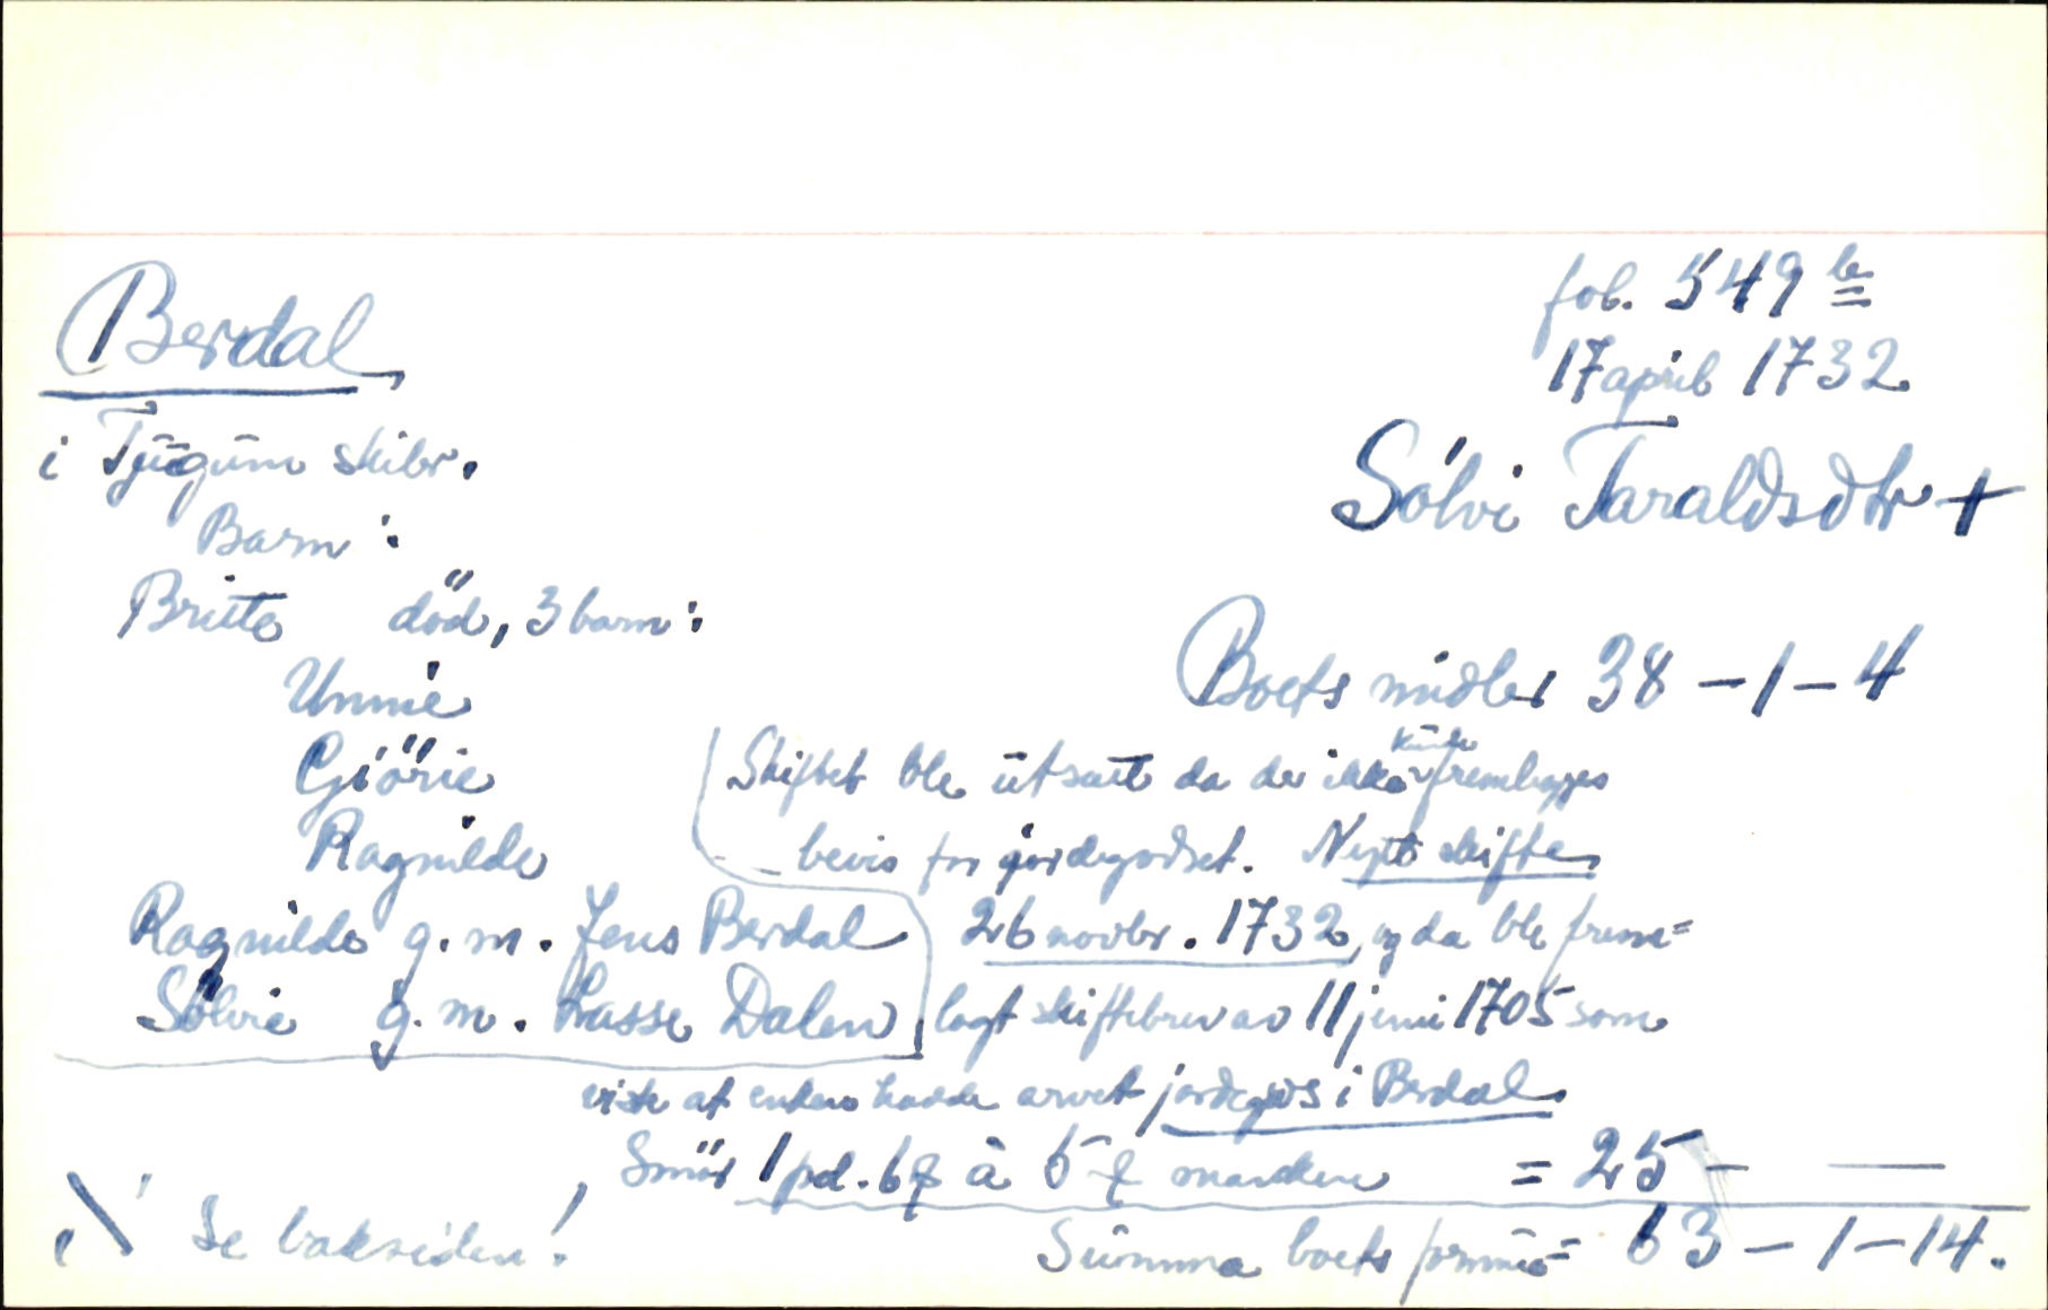 Berdal
i Tjugum skibr.
Barn:
Britte död, 3 barn:
Unnie
Giörie
Ragnilde
Ragnilde g.m. Jens Berdal
Sölvie g.m. Lasse Dalen
fol. 549 b
17 april 1732
Sölvi Taraldsdtr +
Boets midler 38 - 1 - 4
Skiftet ble utsatt da der ikke kunde fremlegges
bevis for jordegodset. Nytt skifte
26 novbr. 1732, og da ble frem=
lagt skiftebrev av 11 juni 1705 som
viste at enken hadde arvet jordegods i Berdal
Smör 1 pd. 6 à 5 marken = 25 - —
Summa boets formue = 63 - 1 - 14.
Se baksiden!